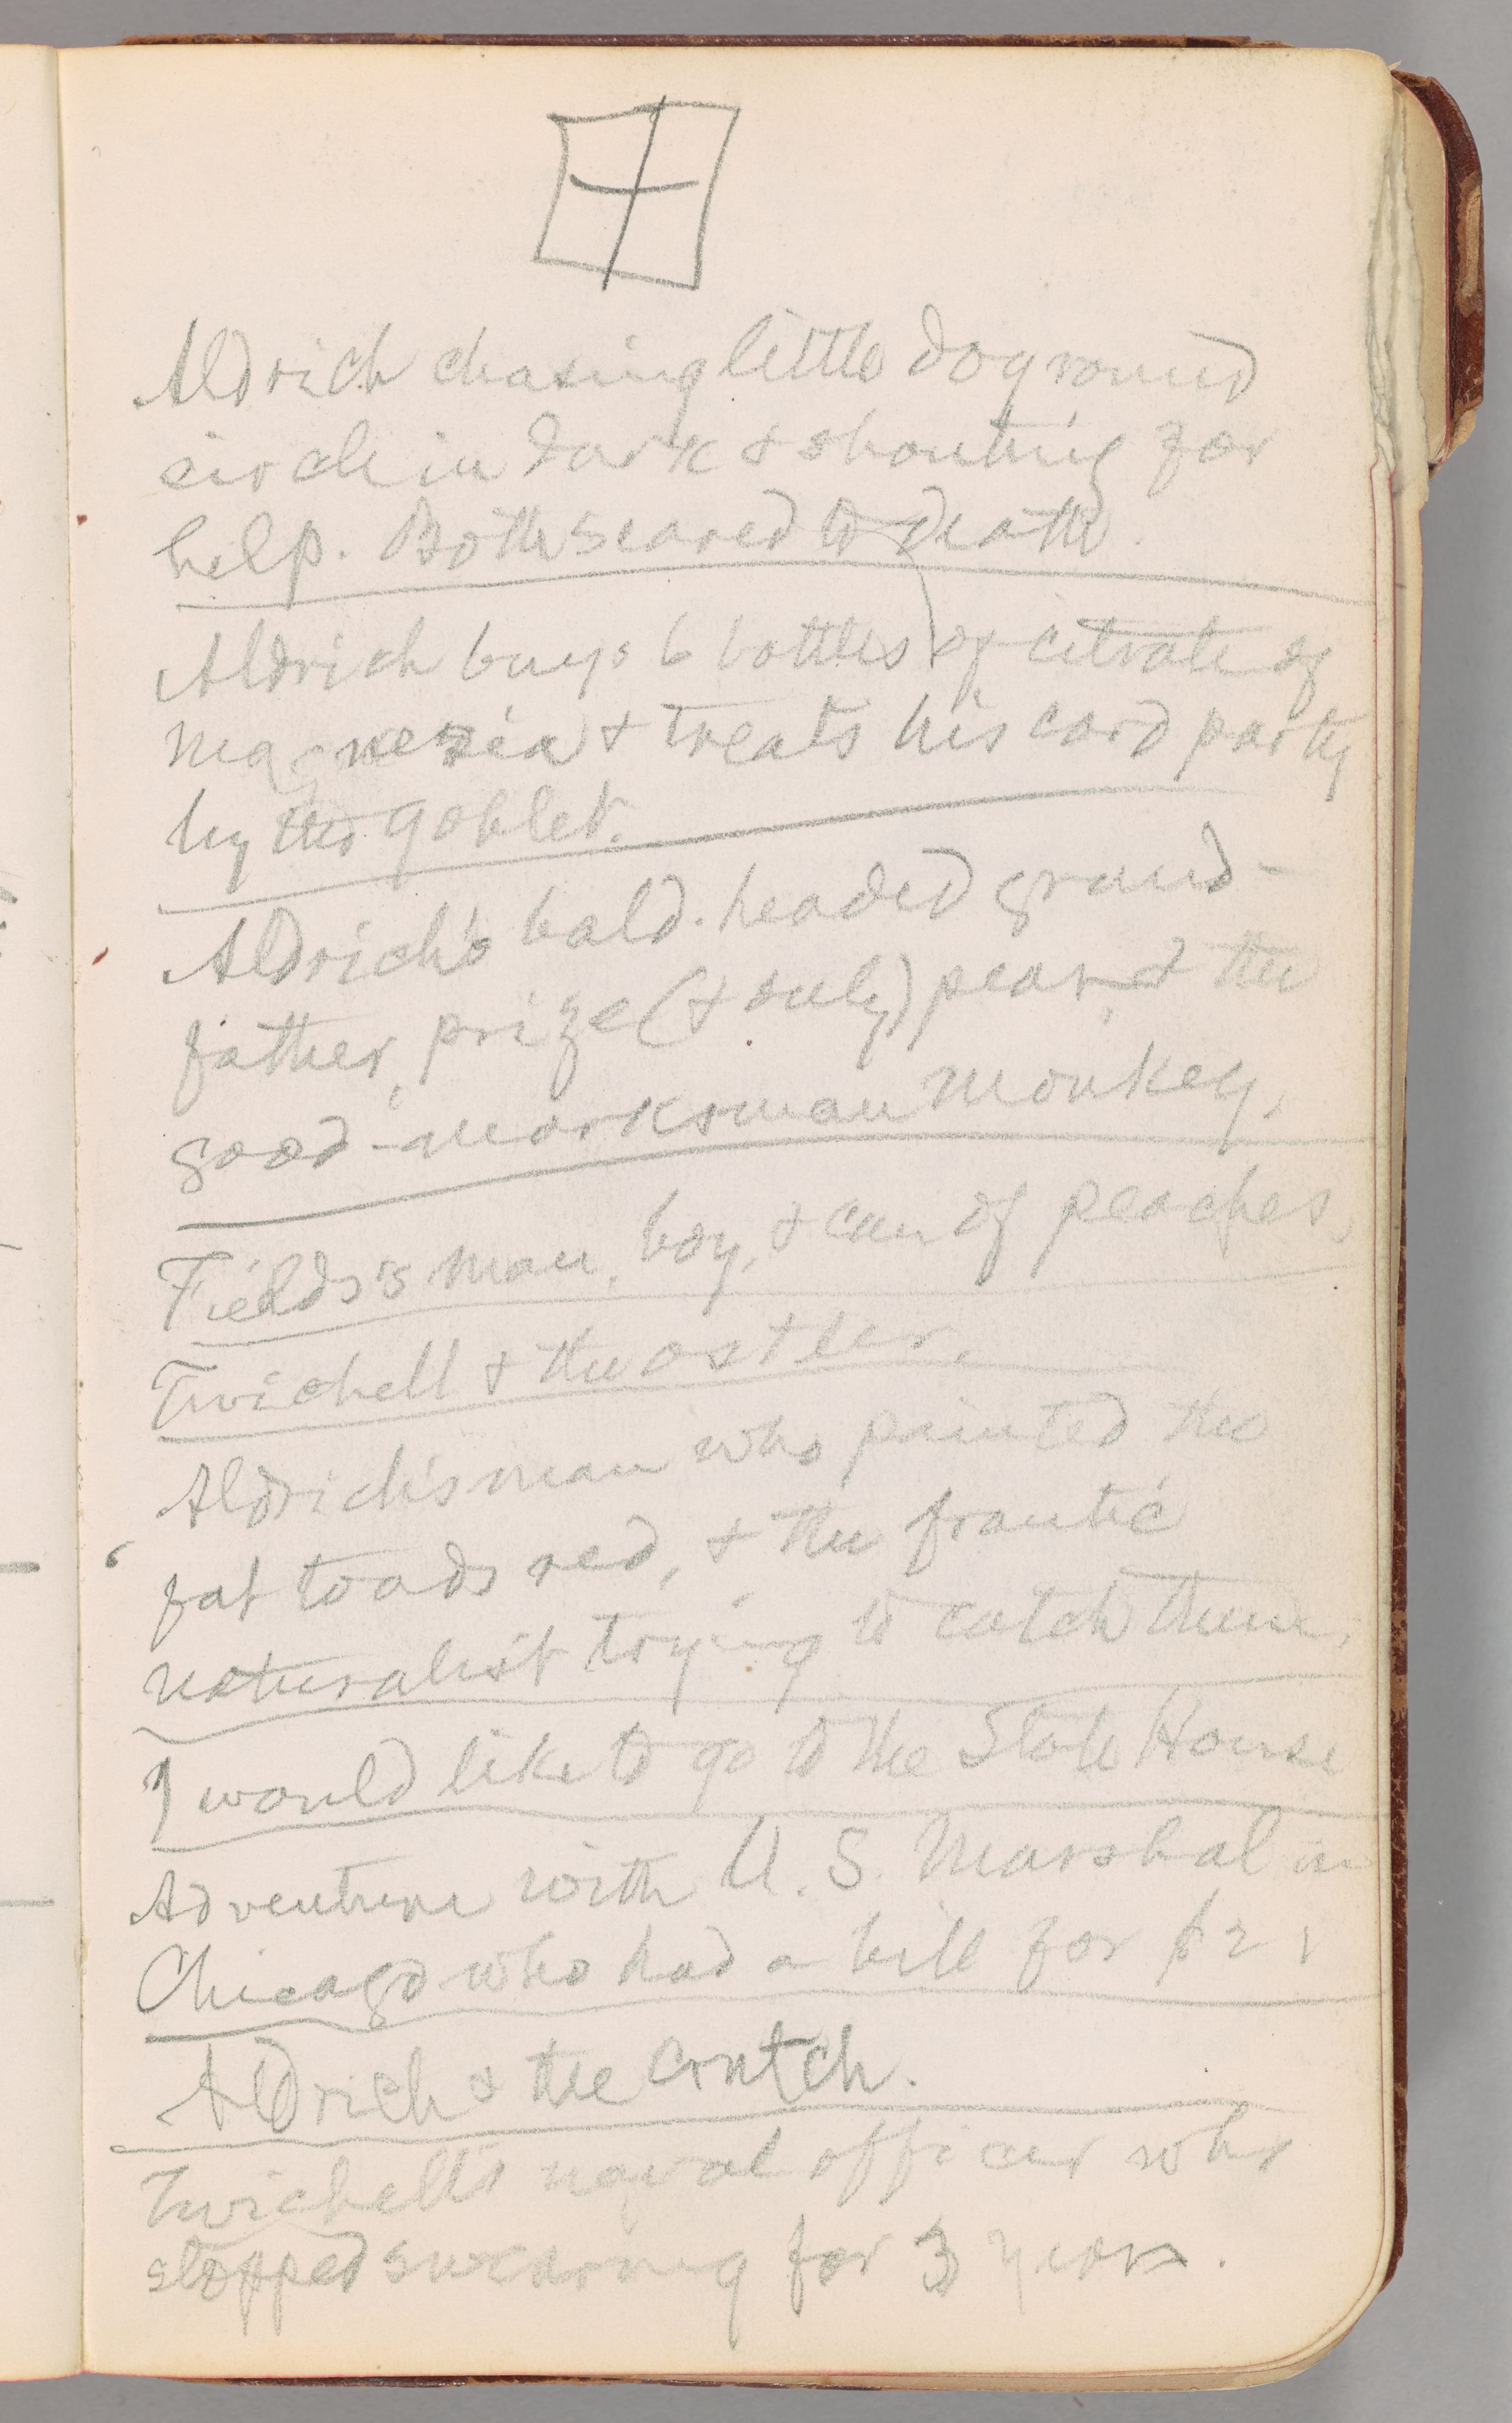 Aldrich chasing little dog round
circle in dark & shouting for
help. Both scared to death.
Aldrich buys 6 bottles of citrate of
magnesia & treats his card party
by the goblet.
Aldrich's bald-headed grand-
father, prize (& only) pear, & the
good-marksman monkey.
Fields's man, boy, & can of peaches,
Twichell & the ostler.
Aldrich's man who painted the
fat toads red, & the frantic
naturalist trying to catch them.
I would like to go to the State House
Adventure with U.S. Marshal in
Chicago who had a bill for $21
Aldrich & the crutch.
Twichell's naval officer who
stopped swearing for 3 years.